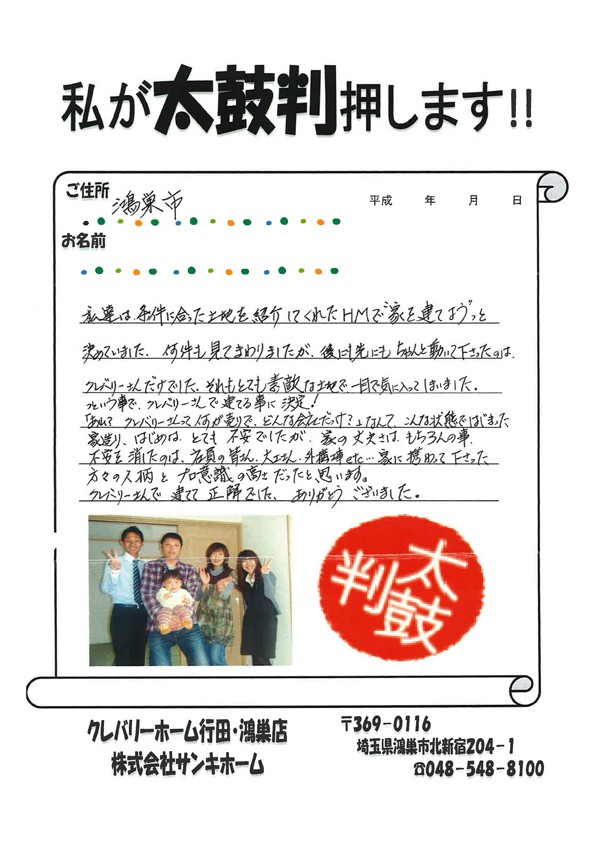 私が太鼓判押します!!
ご住所 鴻巣市
平成 年 月 日
お名前
私達は、条件に合った土地を紹介してくれたHMで家を建てようっと
決めていました。何件も見てまわりましたが、後にも先にもちゃんと動いて下さったのは、
クレバリーさんだけでした。それもとても素敵な土地で、一目で気に入ってしまいました。
っという事で、クレバリーさんで建てる事に決定!
「あれ? クレバリーさんって何が売りで、どんな会社だっけ?」なんて、こんな状態ではじまった
家造り、はじめは、とても不安でしたが、家の丈夫さは、もちろんの事、
不安を消したのは、店員の皆さん、大工さん、外構埤etc…家に携わって下さった
方々の人柄とプロ意識の高さだったと思います。
クレバリーさんで建てて正解でした、ありがとうございました。
太鼓判
クレバリーホーム行田・鴻巣店
株式会社サンキホーム
〒369-0116
埼玉県鴻巣市北新宿204-1
☎048-548-8100